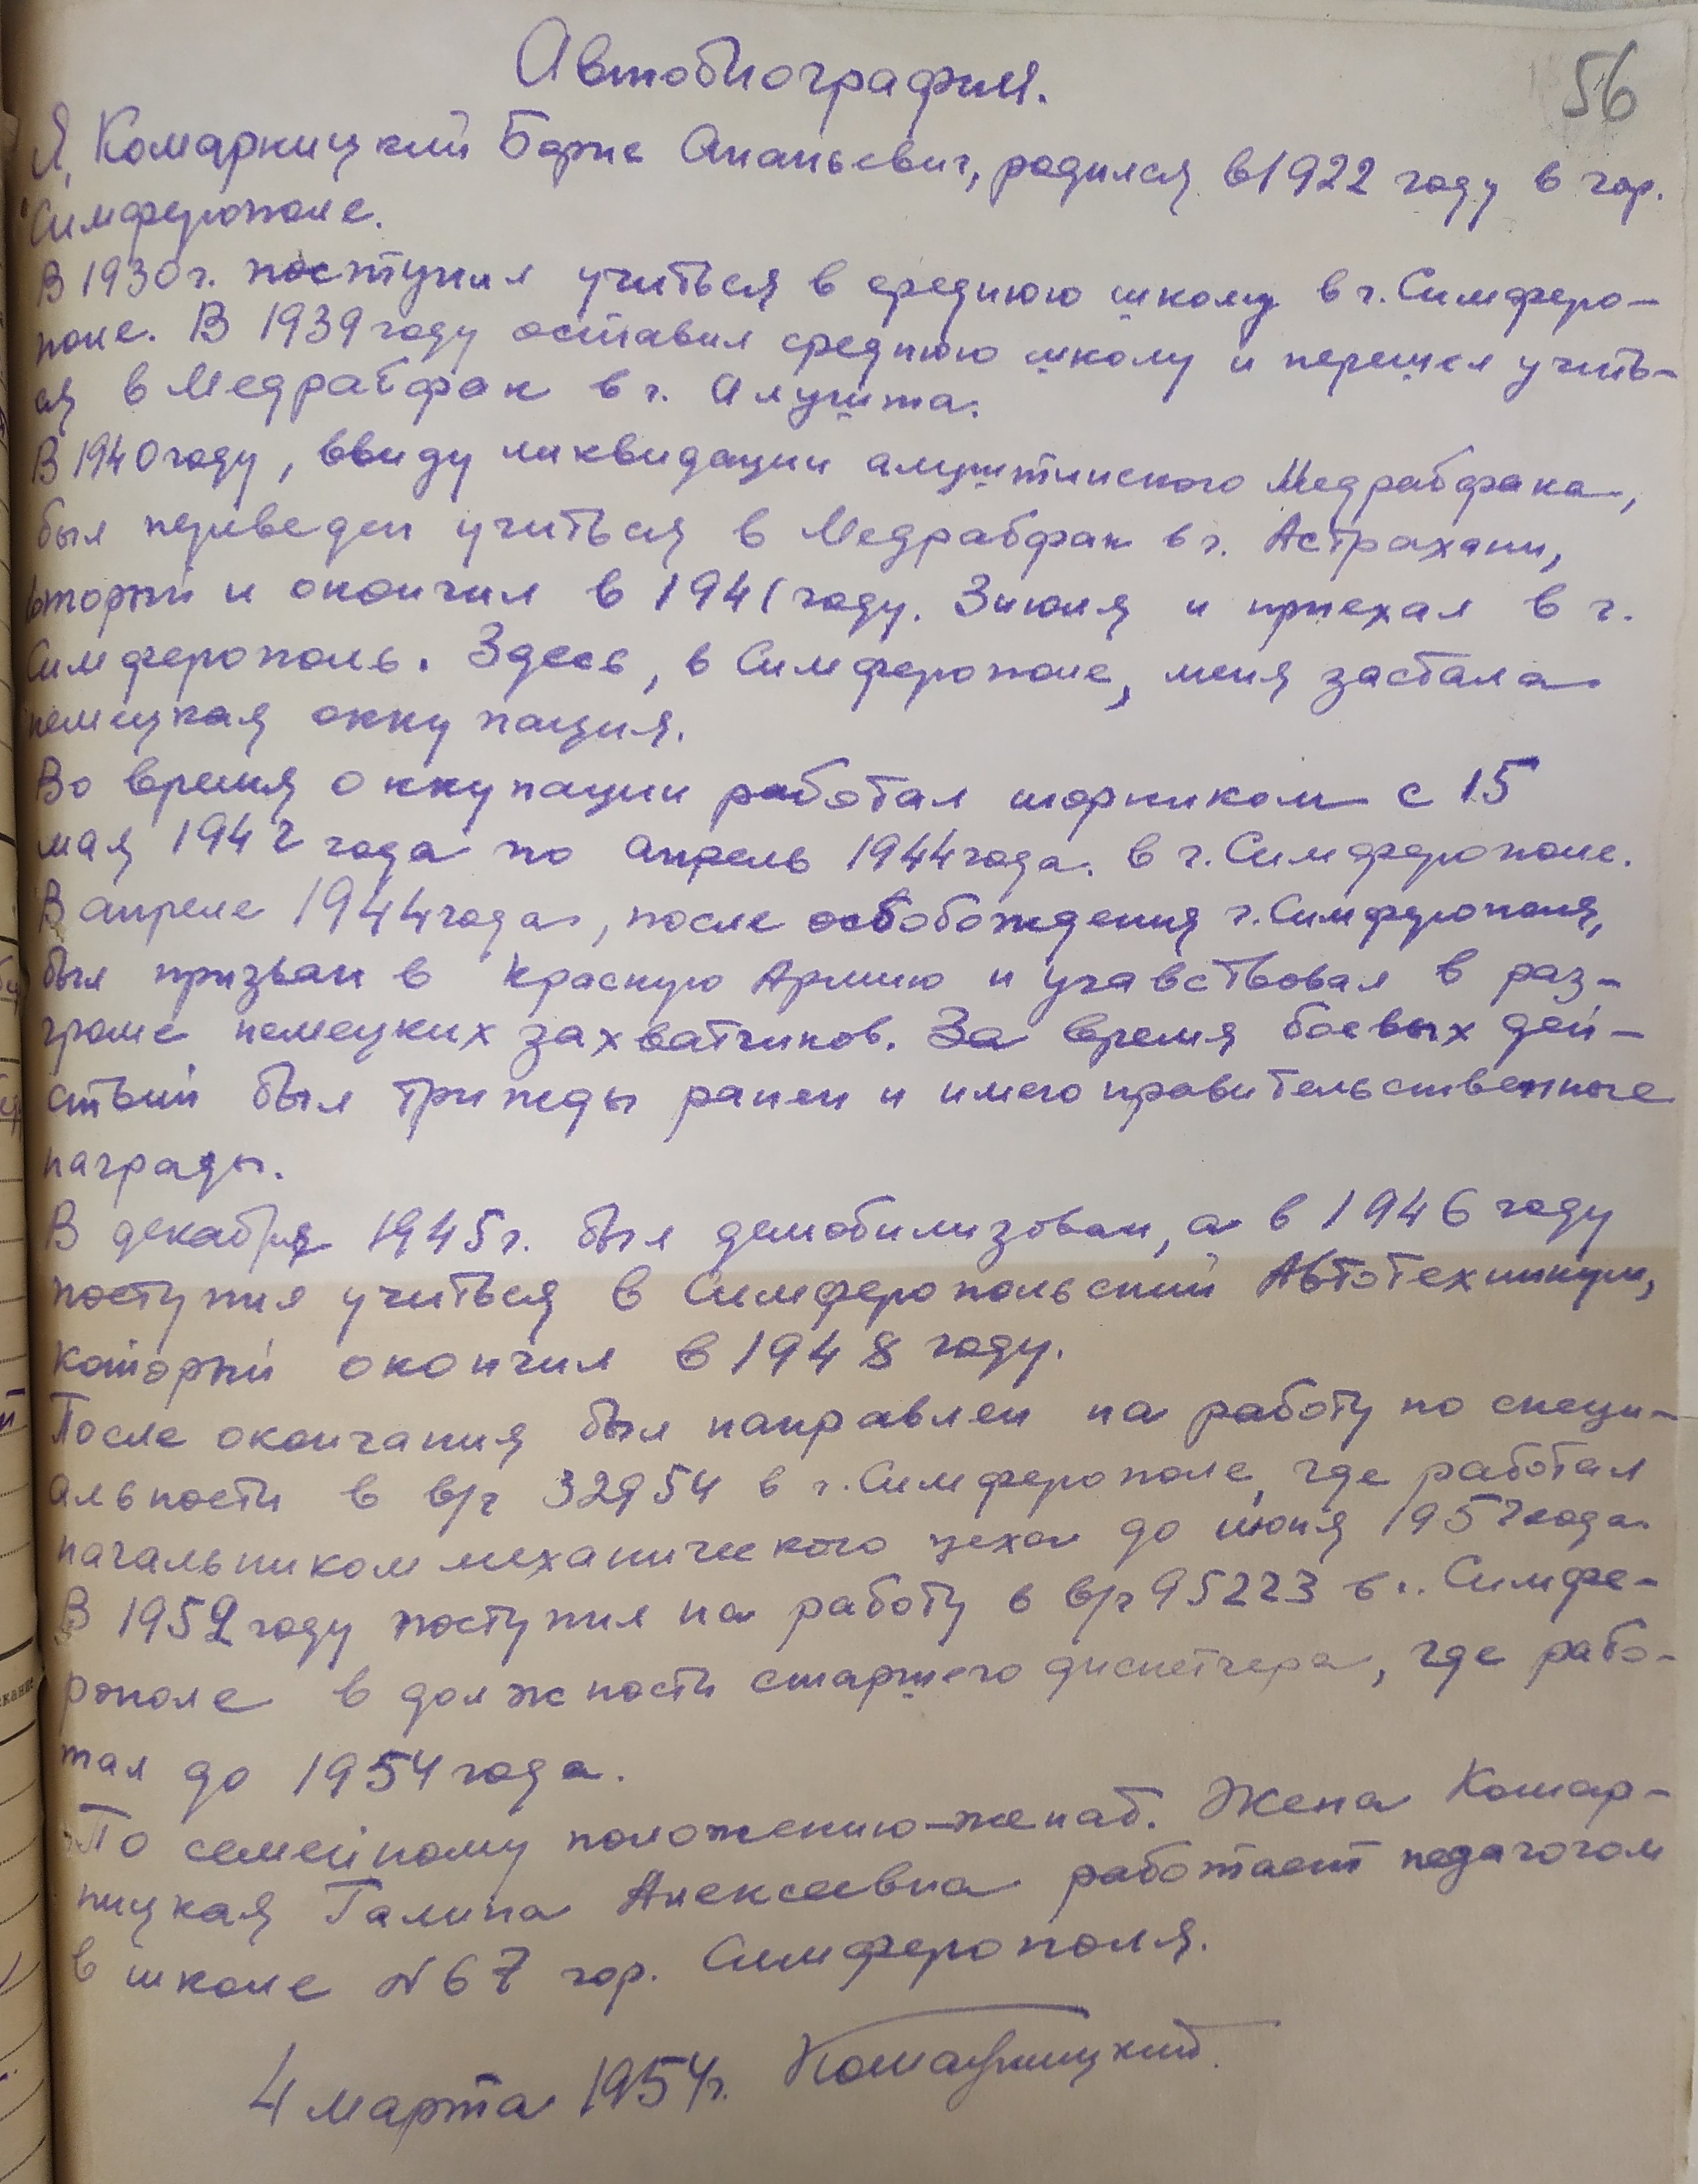 56
Автобиография.
Я, Комарницкий Борис Ананьевич, родился в 1922 году в гор.
Симферополе.
В 1930 г. поступил учиться в среднюю школу в г. Симферо-
поле. В 1939 году оставил среднюю школу и перешел учить-
ся в Медрабфак в г. Алушта.
В 1940 году, ввиду ликвидации алуштинского Медрабфака,
был переведен учиться в Медрабфак в г. Астрахани,
который и окончил в 1941 году. 3 июля и приехал в г.
Симферополь. Здесь, в Симферополе, меня застала
немецкая оккупация.
Во время оккупации работал шорником с 15
мая 1942 года по апрель 1944 года. в г. Симферополе.
В апреле 1944 года, после освобождения г. Симферополя,
был призван в Красную Армию и учавствовал в раз-
громе немецких захватчиков. За время боевых дей-
ствий был трижды ранен и имею правительственные
награды.
В декабря 1945 г. был демобилизован, а в 1946 году
поступил учиться в Симферопольский Автотехникум,
который окончил в 1948 году.
После окончания был направлен на работу по специ-
альности в в/ч 32954 в г. Симферополе, где работал
начальником механического цеха до июня 1952 года.
В 1952 году поступил на работу в в/ч 95223 в г. Симфе-
рополе в должности старшего диспетчера, где рабо-
тал до 1954 года.
По семейному положению-женат. Жена Комар-
ницкая Галина Алексеевна работает педагогом
в школе №67 гор. Симферополя.
4 марта 1954 г. Комарницкий